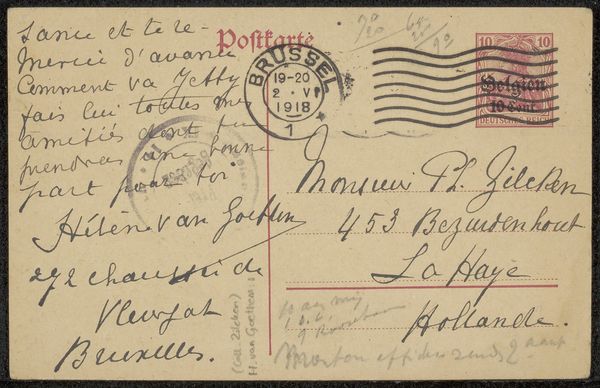 Postkarte
sance et te re-
mercie d'avance
Comment va Jetty
fais lui toutes mes
amitiés dont tu
prendras une bonne
part pour toi.
Hélène van Goethem
272 chaussée de
Vleurgat
Bruxelles.
BRÜSSEL
19-20
2 · VI
1918
1
10 10
Belgien
10 Cent.
DEUTSCHES REICH
Monsieur Ph. Zilcken
453 Bezuidenhout
La Haye
Hollande.
(Coll. Zilcken)
H. van Goethem